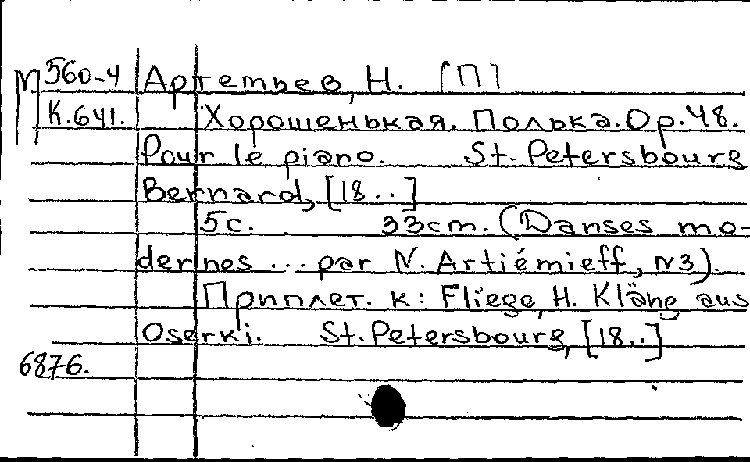 М 560-4 Артемьев, Н. [П]
К.641. Хорошенькая. Полька. Ор.48.
Pour le piano. St. Petersbourg
Bernard, [18..]
5с. 33cm. (Danses mo-
dernes ... par N. Artiémieff, N3).
Приплет. к: Fliege, H. Kläng aus
Oserki. St. Petersbourg, [18..]
6876.